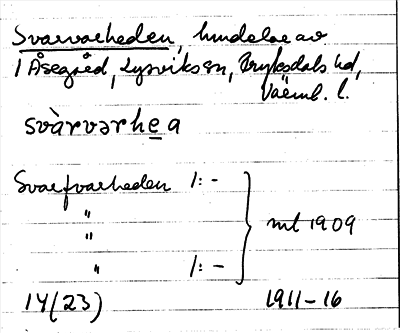 Svarvarheden, hundelar av
1 Åsegård, Lysviks sn, Fryksdals hd,
Värml. l.
svàrvərhe̲a
Svarfvarheden 1: -
"
"
" 1: -
ml 1909
14(23) 1911-16